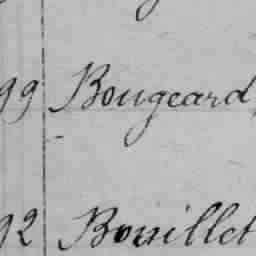 99 Bougeard
92 Bouillet